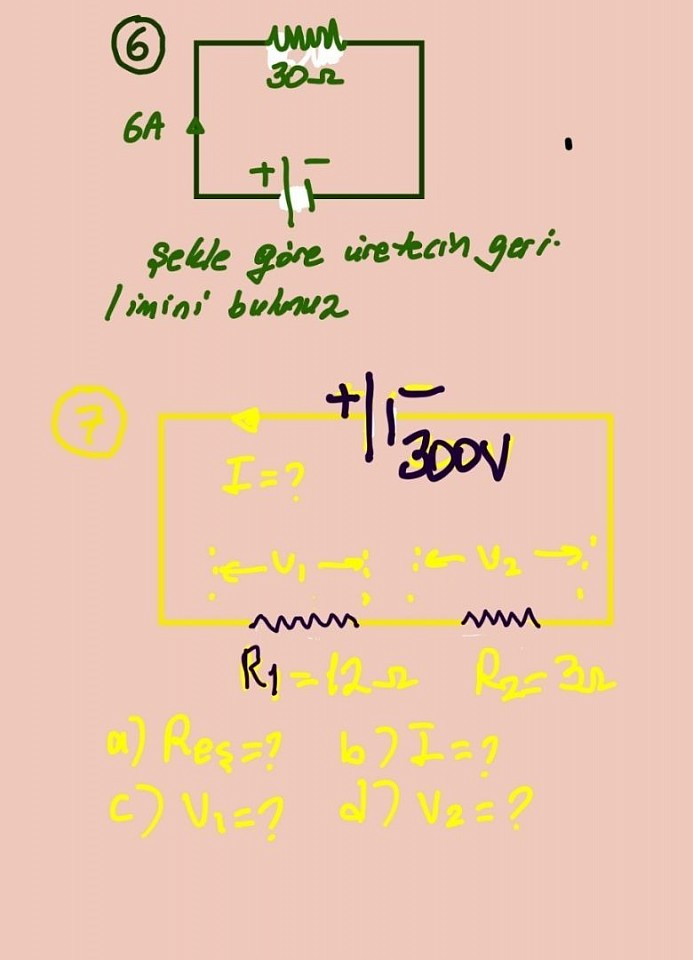 6
30Ω
6A
+ -
Şekle göre üretecin geri-
limini bulunuz
7
+ -
300V
I=?
V₁ V₂
R₁=12Ω R₂=3Ω
a) Reş=? b) I=?
c) V₁=? d) V₂=?